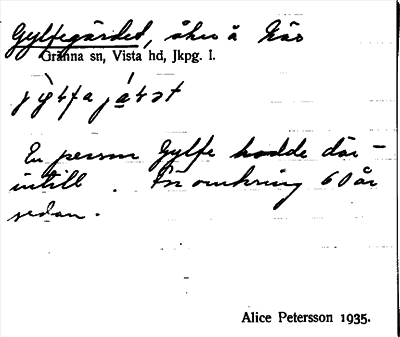 Gylfegärdet, åker å Näs
Gränna sn, Vista hd, Jkpg. l.
En person Gylfe hodde där-
intill. För omkring 60 år
sedan.
Alice Petersson 1935.